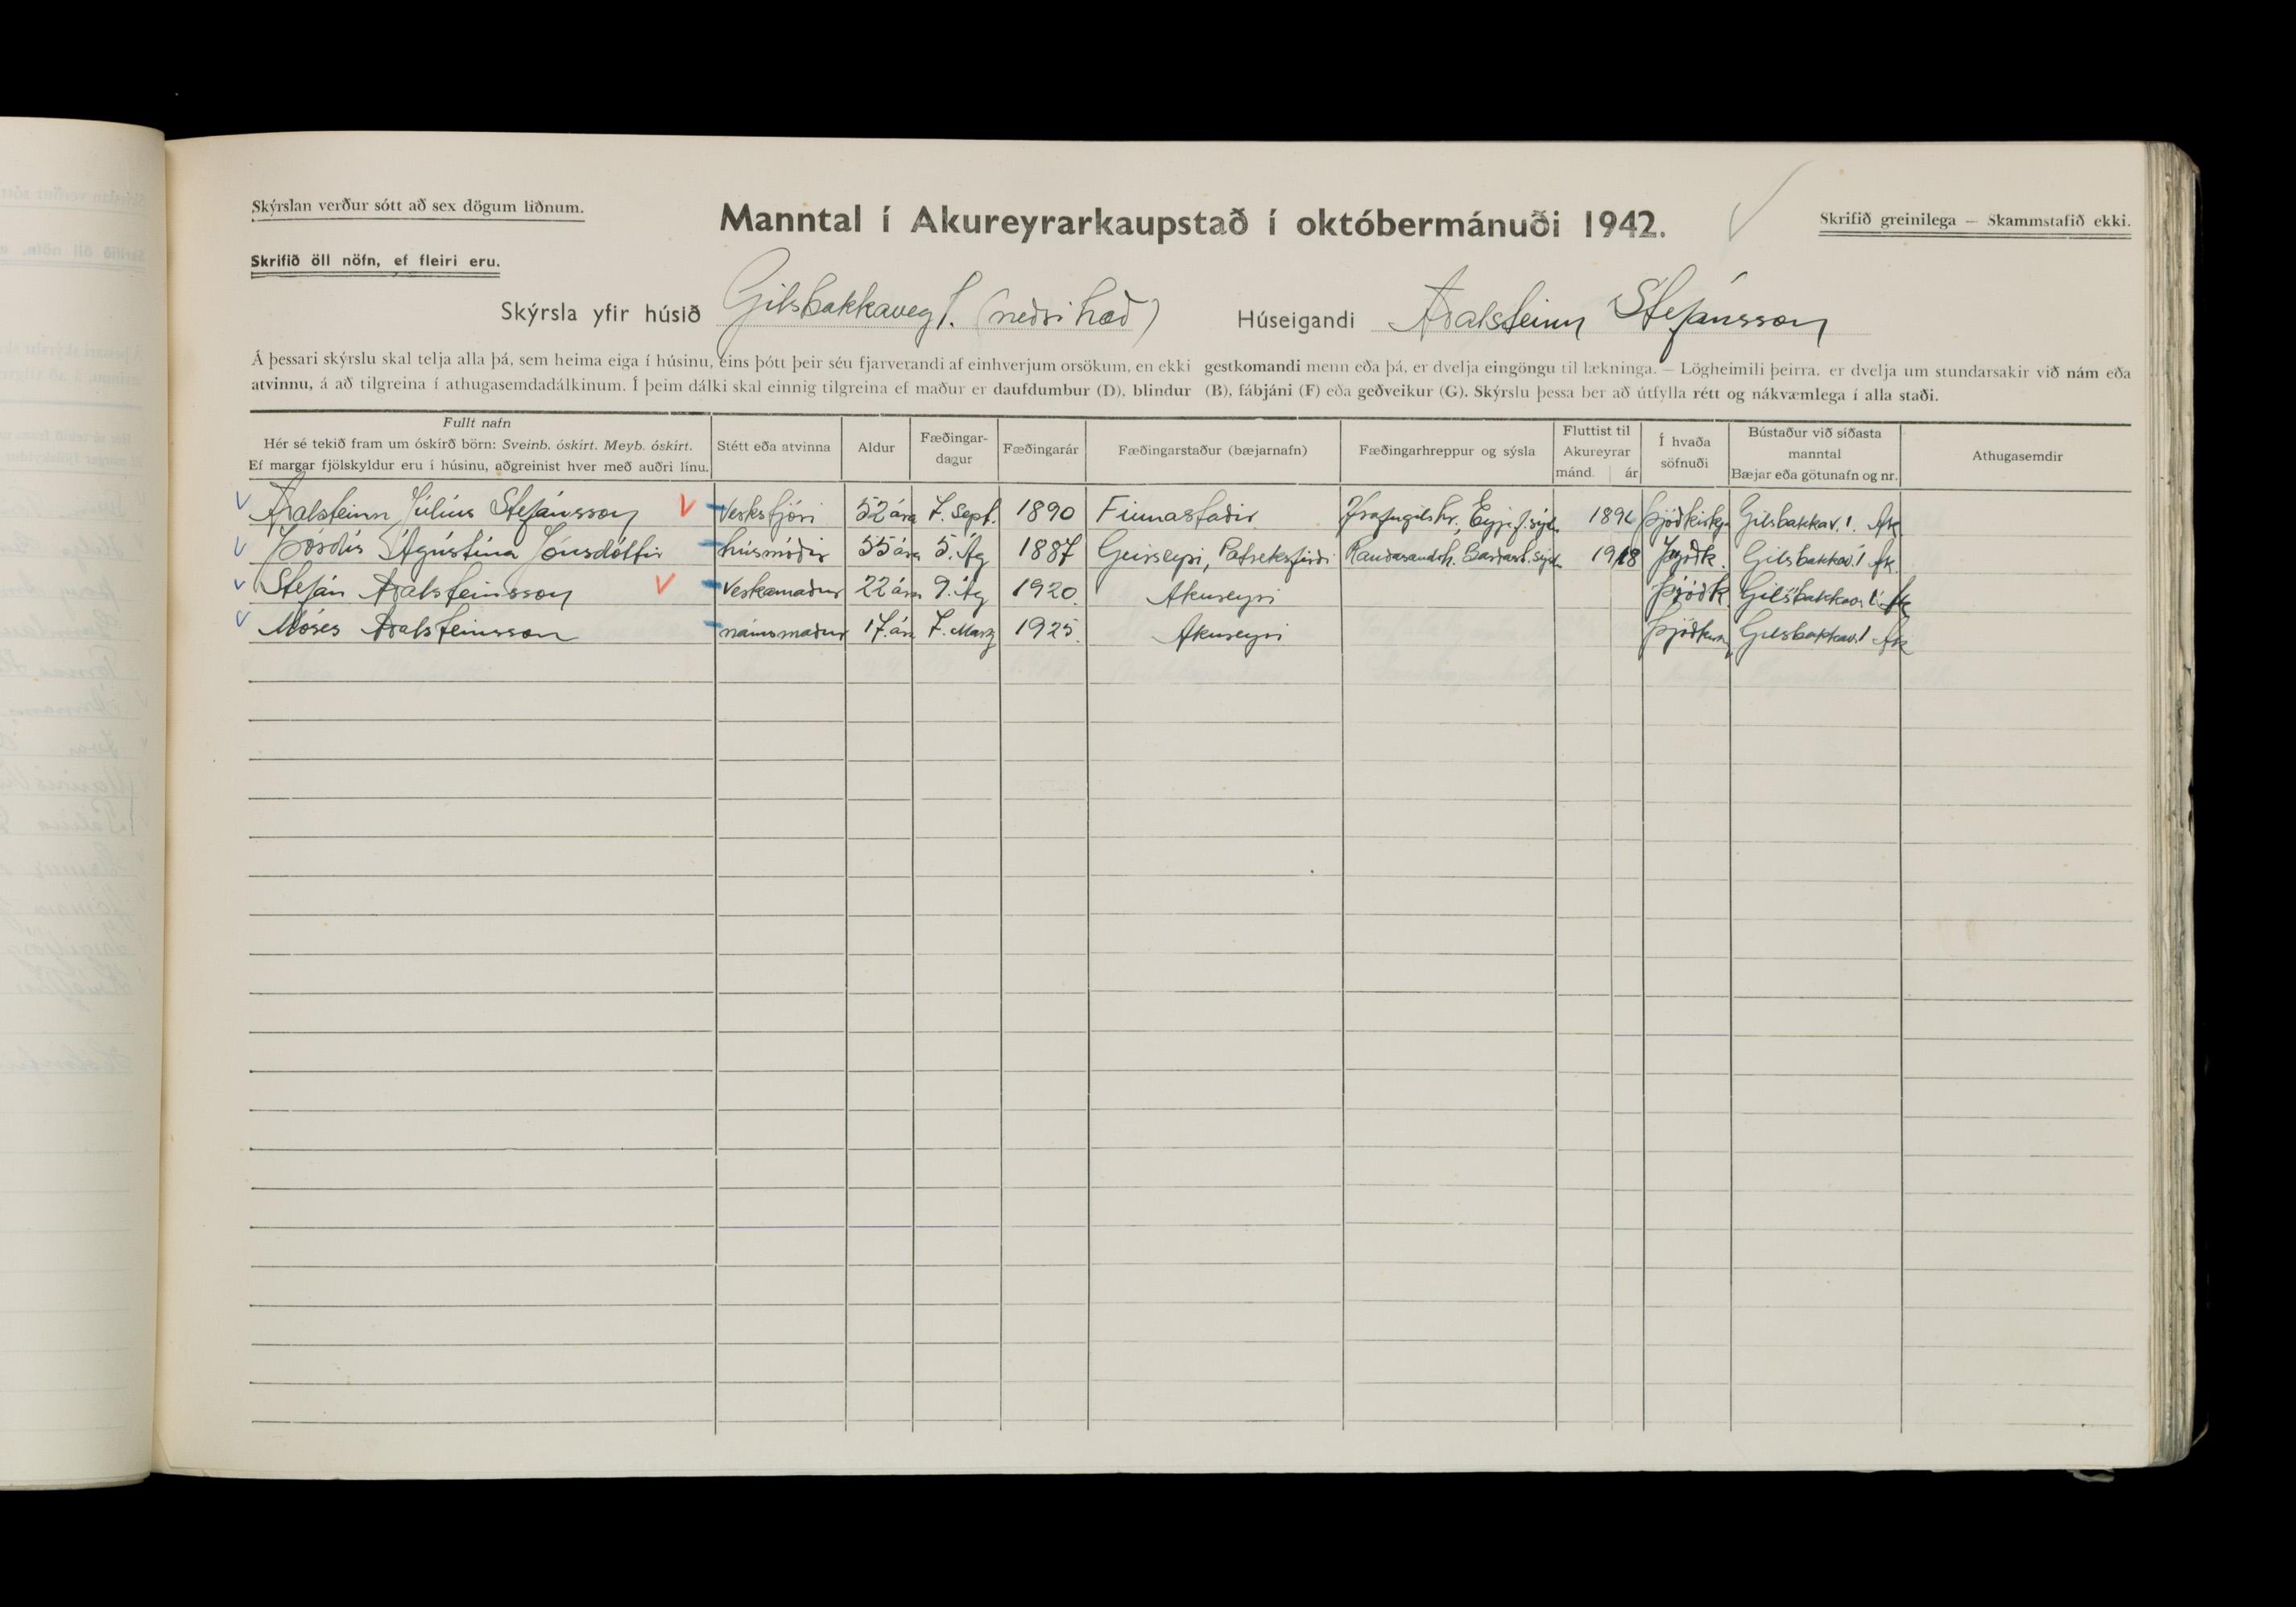 Skýrslan verður sótt að sex dögum liðnum.
Manntal í Akureyrarkaupstað í októbermánuði 1942.
Skrifið greinilega — Skammstafið ekki.
Skrifið öll nöfn, ef fleiri eru.
Skýrsla yfir húsið Gilsbakkaveg 1. (neðri hæð) Húseigandi Aðalsteinn Stefánsson
Á þessari skýrslu skal telja alla þá, sem heima eiga í húsinu, eins þótt þeir séu fjarverandi af einhverjum orsökum, en ekki gestkomandi menn eða þá, er dvelja eingöngu til lækninga. — Lögheimili þeirra, er dvelja um stundarsakir við nám eða
atvinnu, á að tilgreina í athugasemdadálkinum. Í þeim dálki skal einnig tilgreina ef maður er daufdumbur (D), blindur (B), fábjáni (F) eða geðveikur (G). Skýrslu þessa ber að útfylla rétt og nákvæmlega í alla staði.
Fullt nafn
Hér sé tekið fram um óskírð börn: Sveinb. óskírt. Meyb. óskírt.
Ef margar fjölskyldur eru í húsinu, aðgreinist hver með auðri línu.
Stétt eða atvinna
Aldur
Fæðingar-
dagur
Fæðingarár
Fæðingarstaður (bæjarnafn)
Fæðingarhreppur og sýsla
Fluttist til
Akureyrar
mánd. ár
Í hvaða
söfnuði
Bústaður við síðasta
manntal
Bæjar eða götunafn og nr.
Athugasemdir
Aðalsteinn Júlíus Stefánsson Verkstjóri 52 ára 7. Sept. 1890 Finnastaðir Hrafnagilshr., Eyjafj.sýslu 1896 Þjóðkirkju Gilsbakkav. 1. Ak.
Þórdís Ágústína Jónsdóttir húsmóðir 55 ára 5. Ág 1887 Geirseyri, Patreksfirði Rauðasandsh. Barðast.sýslu 1918 Þjóðk. Gilsbakkav. 1 Ak.
Stefán Aðalsteinsson Verkamaður 22 ára 9. Ág 1920. Akureyri Þjóðk. Gilsbakkav. 1 Ak
Móses Aðalsteinsson námsmaður 17. ára 7. Marz 1925. Akureyri Gilsbakkav. 1 Ak